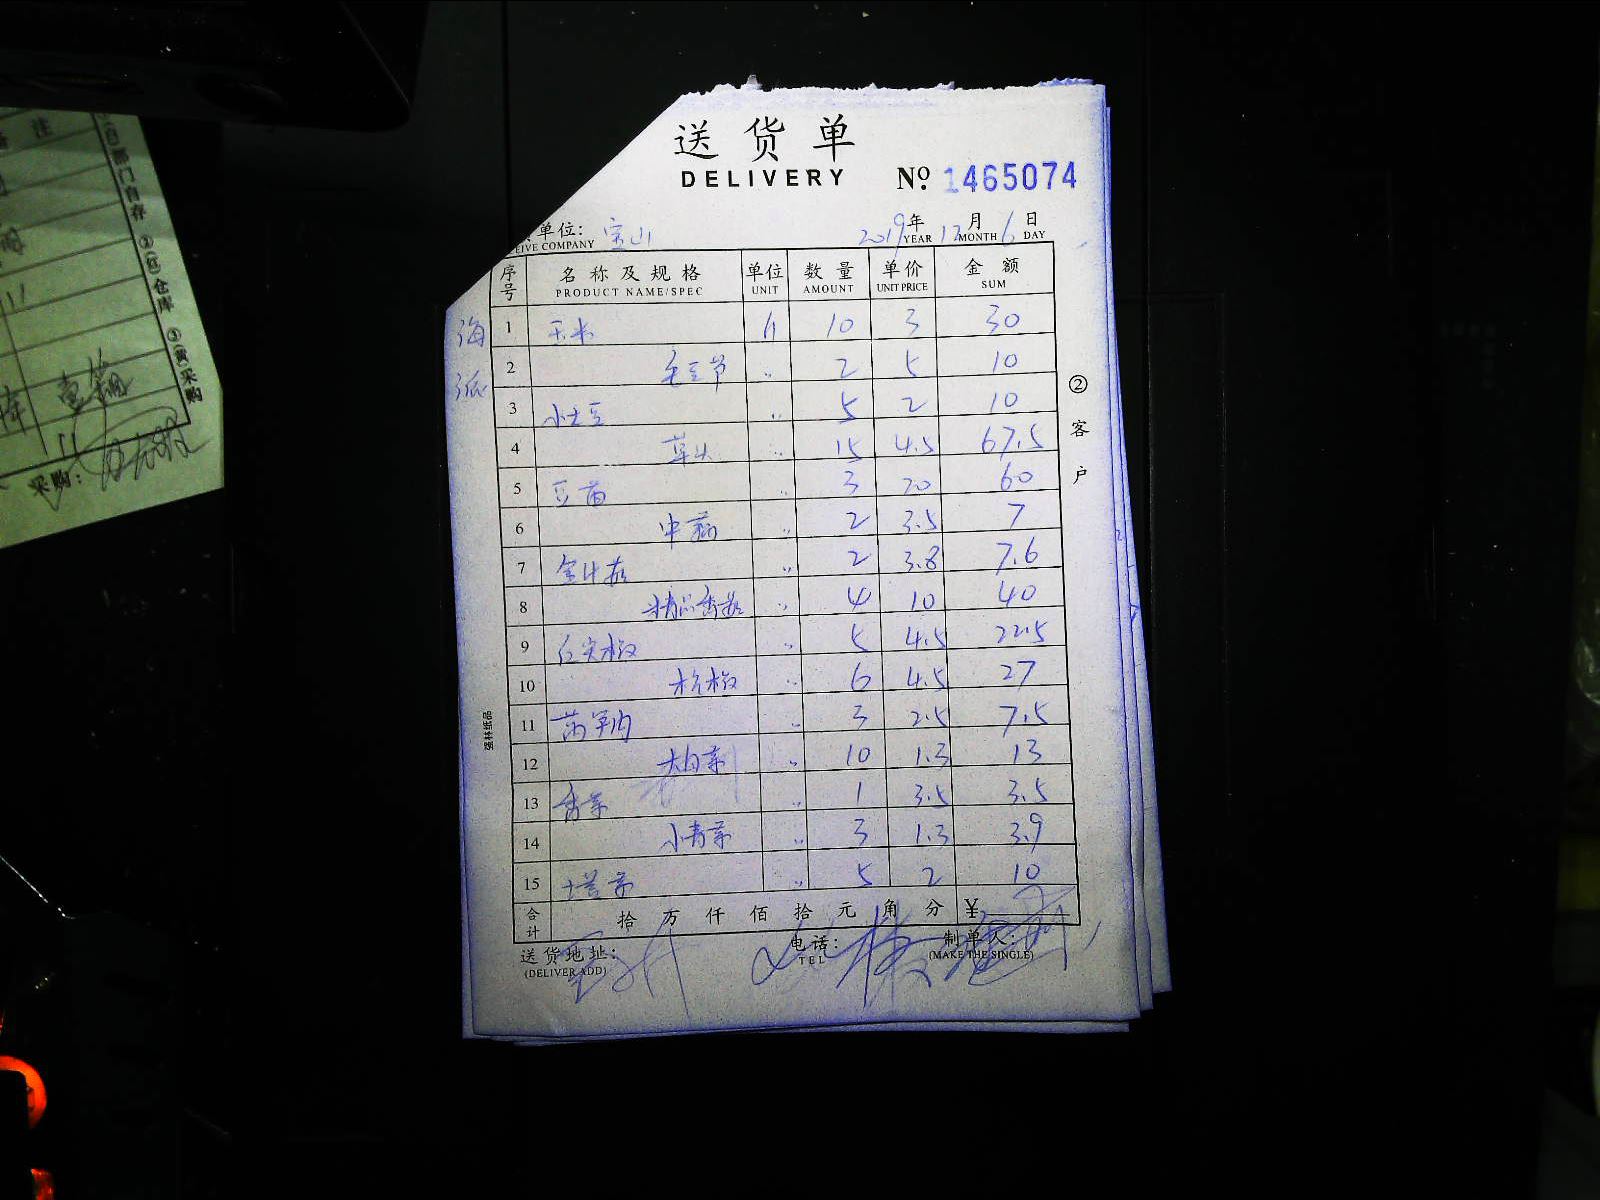 送货单
DELIVERY
No. 1465074
单位: 宝山 2019年 12月 6日
EIVE COMPANY YEAR MONTH DAY
序号 名称及规格 单位 数量 单价 金额
PRODUCT NAME/SPEC UNIT AMOUNT UNIT PRICE SUM
1 玉米 斤 10 3 30
2 毛豆节 〃 2 5 10
3 小土豆 〃 5 2 10
4 草头 〃 15 4.5 67.5
5 豆苗 〃 3 20 60
6 〃 2 3.5 7
7 金针菇 〃 2 3.8 7.6
8 精品香菇 〃 4 10 40
9 红尖椒 〃 5 4.5 22.5
10 杭椒 〃 6 4.5 27
11 茼笋肉 〃 3 2.5 7.5
12 大白菜 〃 10 1.3 13
13 香菜 〃 1 3.5 3.5
14 小青菜 〃 3 1.3 3.9
15 塔菜 〃 5 2 10
合计 拾 万 仟 佰 拾 元 角 分 ¥
送货地址: 电话: 制单人:
(DELIVER ADD) TEL (MAKE THE SINGLE)
海
②客户
强林纸品
注
门自存 ②(红)仓库 ③(黄)采购
采购: